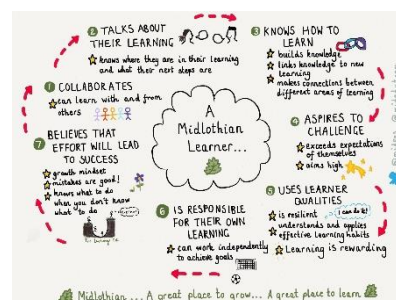 A
Midlothian
Learner...
1 COLLABORATES
can learn with and from
others
2 TALKS ABOUT
THEIR LEARNING
knows where they are in their learning
and what their next steps are
3 KNOWS HOW TO
LEARN
builds knowledge
links knowledge to new
learning
makes connections between
different areas of learning
4 ASPIRES TO
CHALLENGE
exceeds expectations
of themselves
aims high
5 USES LEARNER
QUALITIES
is resilient
I can do it!
understands and applies
effective learning habits
Learning is rewarding
6 IS RESPONSIBLE
FOR THEIR OWN
LEARNING
can work independently
to achieve goals
7 BELIEVES THAT
EFFORT WILL LEAD
TO SUCCESS
growth mindset
mistakes are good!
knows what to do
when you don't know
what to do
Midlothian... A great place to grow... A great place to learn